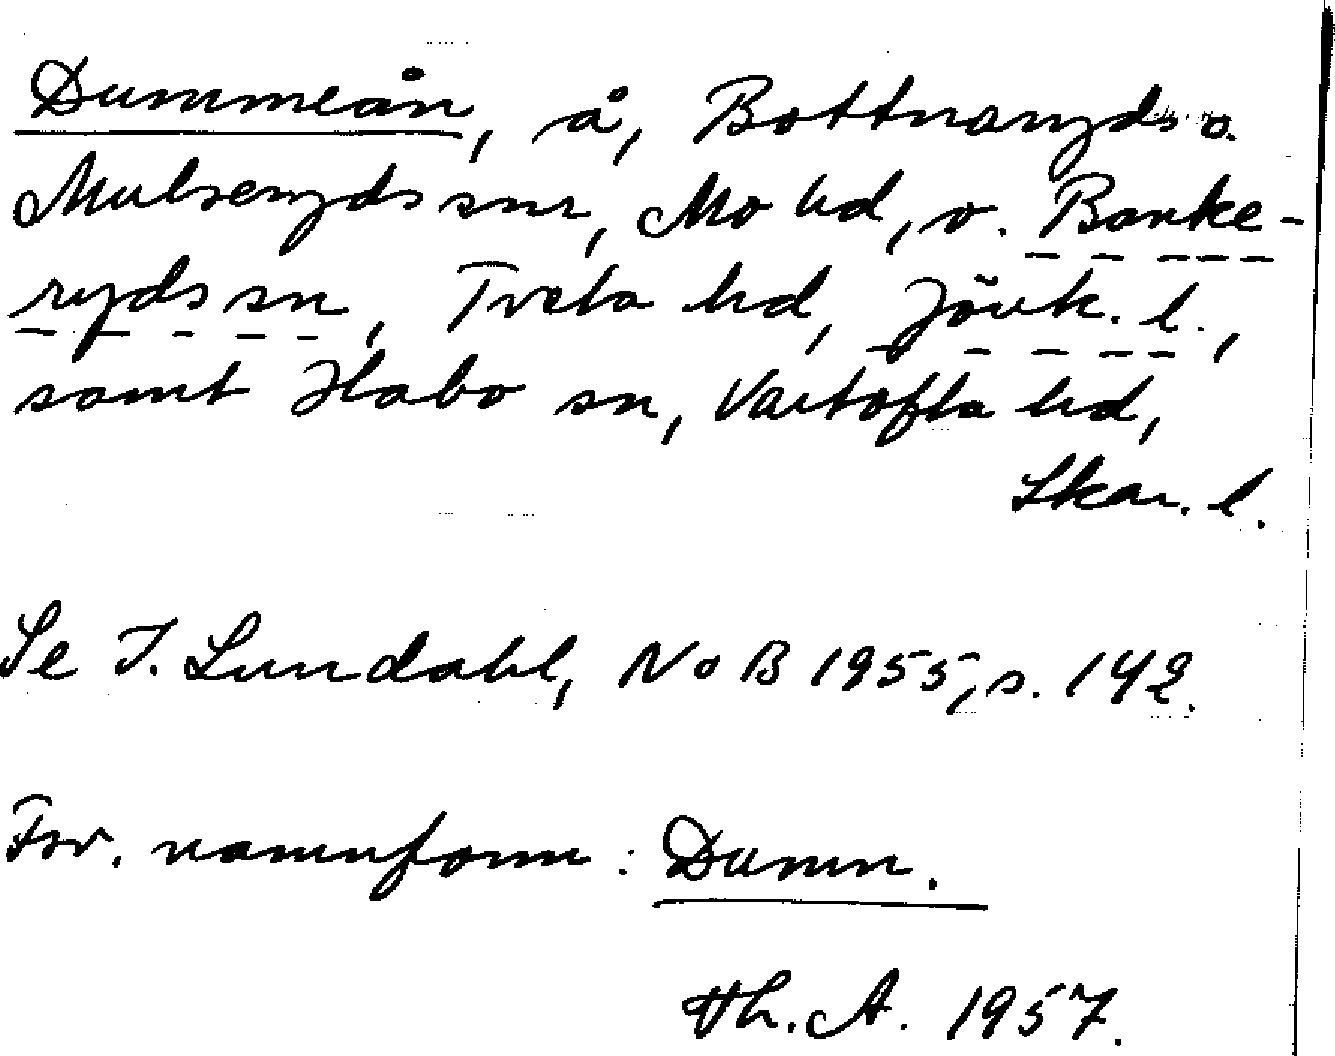 Dummeån, å, Bottnaryds o.
Mulseryds snr, Mo hd, o. Banke-
ryds sn, Tveta hd, Jönk. l.,
samt Habo sn, Vartofta hd,
Skar. l.
Se I. Lundahl, NoB 1955, s. 142.
Fsv. namnform: Dumn.
Th. A. 1957.